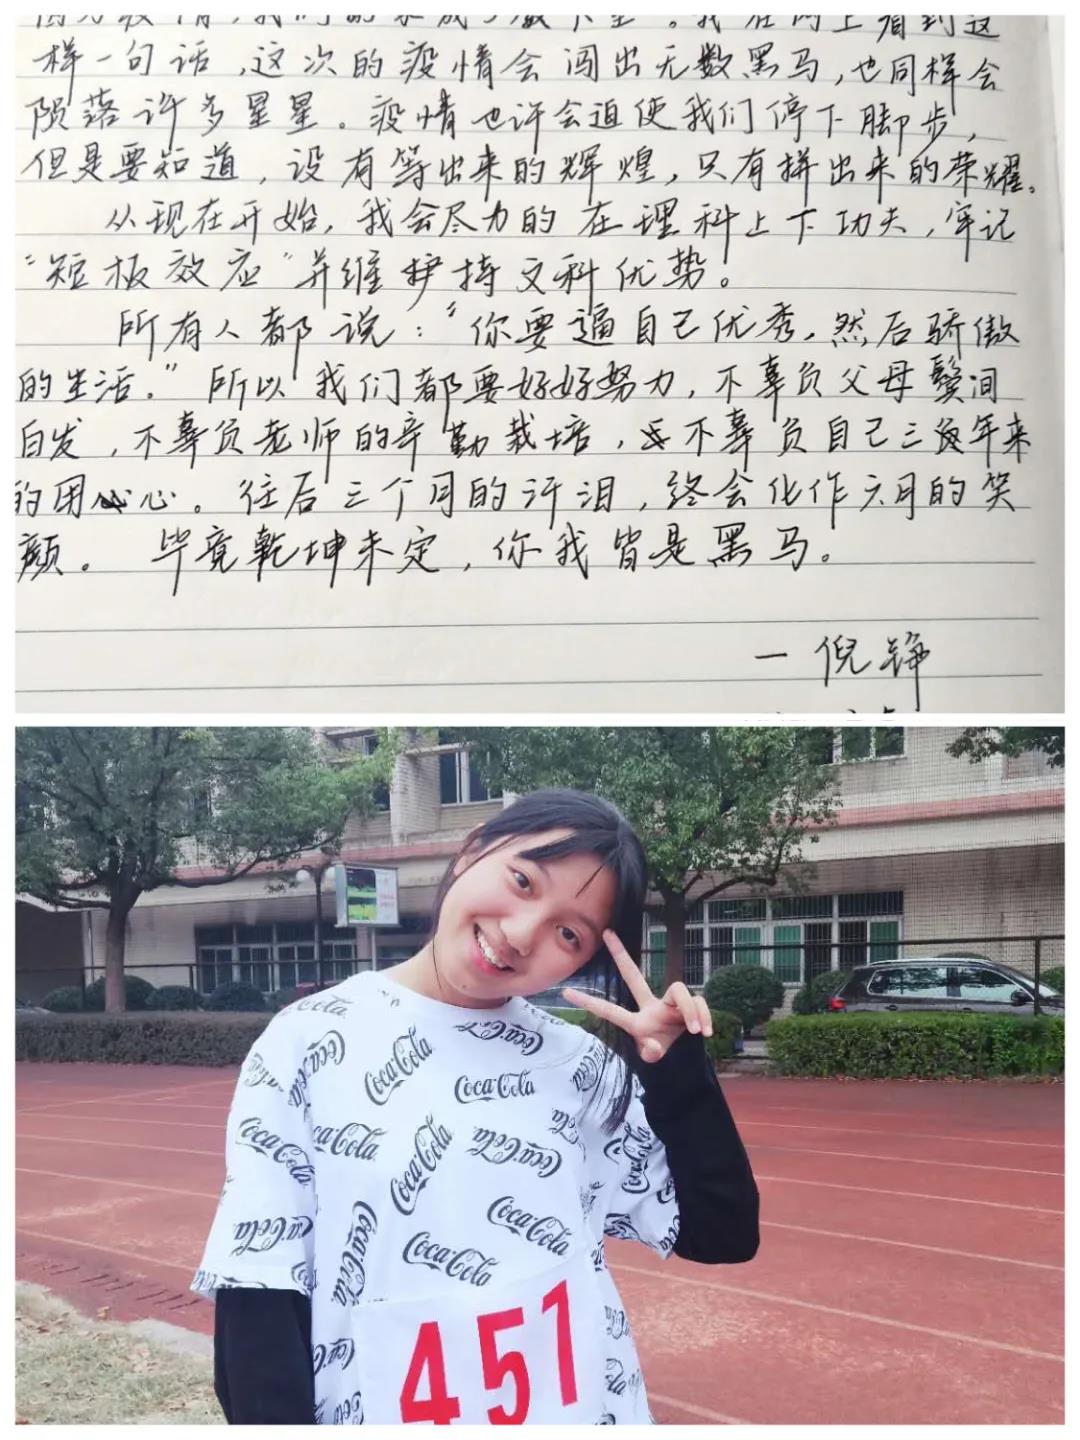 因为疫情,我们的 我在网上看到这
样一句话,这次的疫情会闯出无数黑马,也同样会
陨落许多星星。疫情也许会迫使我们停下脚步,
但是要知道,没有等出来的辉煌,只有拼出来的荣耀。
从现在开始,我会尽力的在理科上下功夫,牢记
“短板效应”并维护持文科优势。
所有人都说:“你要逼自己优秀,然后骄傲
的生活。”所以我们都要好好努力,不辜负父母鬓间
白发,不辜负老师的辛勤栽培,不辜负自己三年来
的用心。往后三个月的汗泪,终会化作六月的笑
颜。 毕竟乾坤未定,你我皆是黑马。
一倪铮
Coca-Cola
Coca-Cola
Coca-Cola
Coca-Cola
Coca-Cola
Coca-Cola
Coca-Cola
Coca-Cola
Coca-Cola
Coca-Cola
451